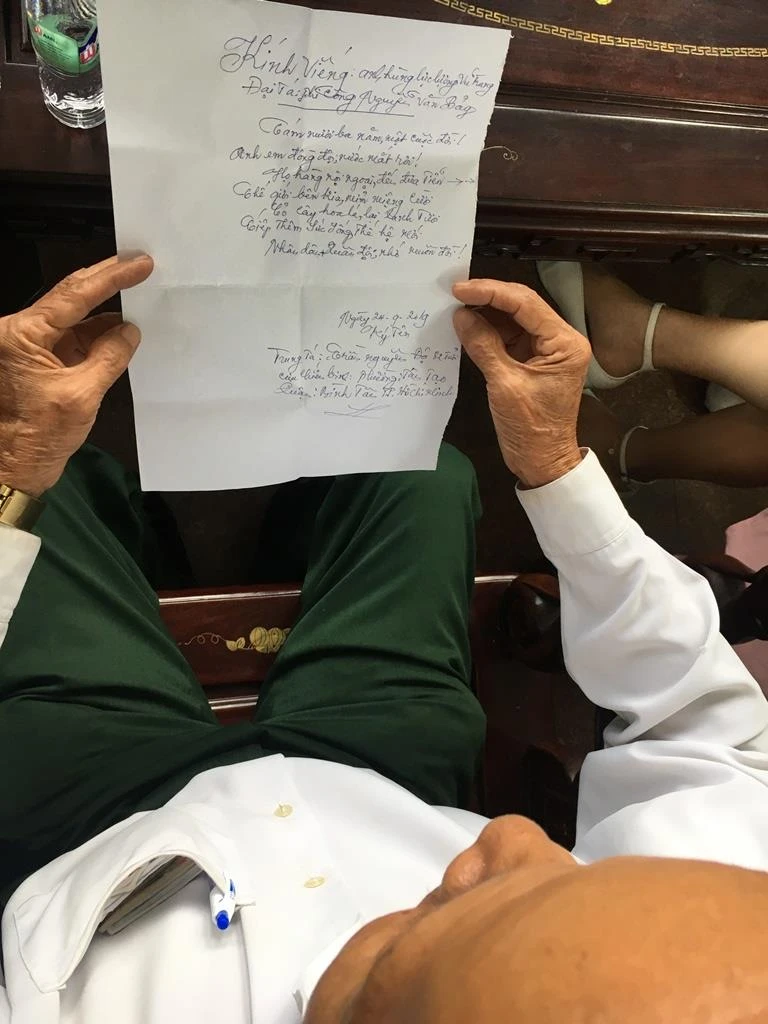 Kính Viếng: anh hùng lực lượng vũ trang
Đại tá, phi công Nguyễn Văn Bảy
Tám mươi ba năm, một cuộc đời!
Anh em đồng đội, nước mắt rơi!
Họ hàng nội ngoại, đều đưa Tiễn
Thế giới bên kia, mỉm miệng cười
Cỏ cây hoa lá, lại xanh Tươi
Tiếp Thêm Sức sống, Thế hệ mới
Nhân dân, Quân đội, nhớ muôn đời!
Ngày 24-9-2019
Ký Tên
Trung Tá: Trần nguyên
cựu chiến binh: phường: Tân Tạo
Quận: Bình Tân TP. Hồ Chí Minh